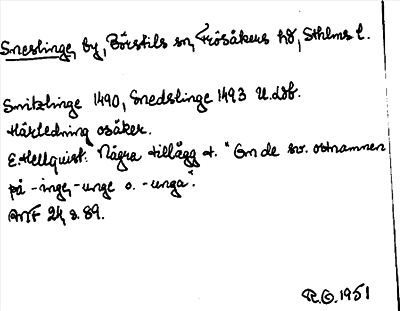 Sneslinge, by, Börstils sn, Frösåkers hd, Sthlms l.
Smitzlinge 1490, Snedslinge 1493 U.dsb.
Härledning osäker.
E. Hellquist: Några tillägg t. "Om de sv. ortnamnen
på -inge, -unge o. -unga".
ANF 24, s. 89.
R.O. 1951